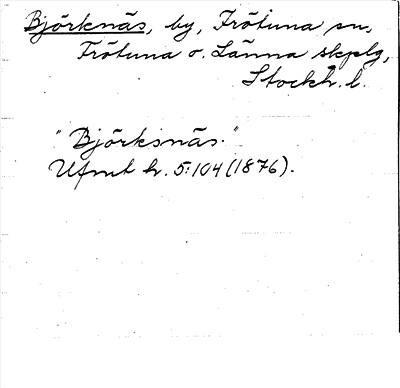 Björknäs, by, Frötuna sn,
Frötuna o. Länna skplg,
Stockh. l.
"Björksnäs."
Ufmt h. 5:104 (1876).